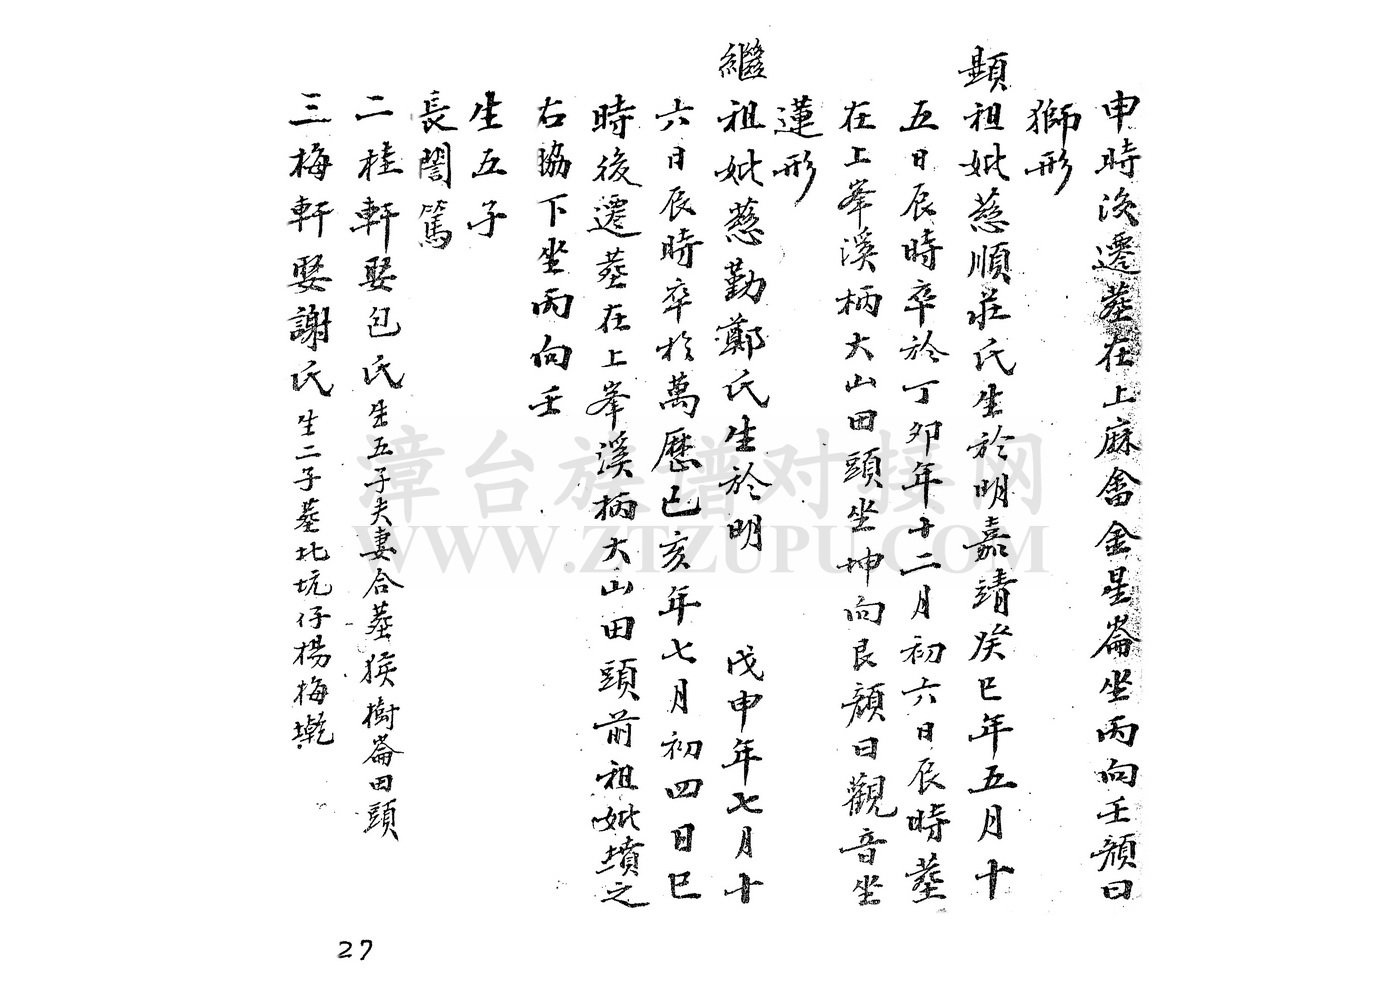 申時後遷塟在上麻畬金星崙坐丙向壬顏曰
獅形
顯祖妣慈順莊氏生於明嘉靖癸巳年五月十
五日辰時卒於丁卯年十二月初六日辰時塟
在上峯溪柄大山田頭坐坤向艮顏曰觀音坐
蓮形
繼祖妣慈勤鄭氏生於明 戊申年七月十
六日辰時卒於萬歷己亥年七月初四日巳
時後遷塟在上峯溪柄大山田頭前祖妣墳之
右脇下坐丙向壬
生五子
長誾篤
二桂軒娶包氏生五子夫妻合塟猴樹崙田頭
三梅軒娶謝氏生二子塟北坑仔楊梅墘
27
漳台族谱对接网
WWW.ZTZUPU.COM